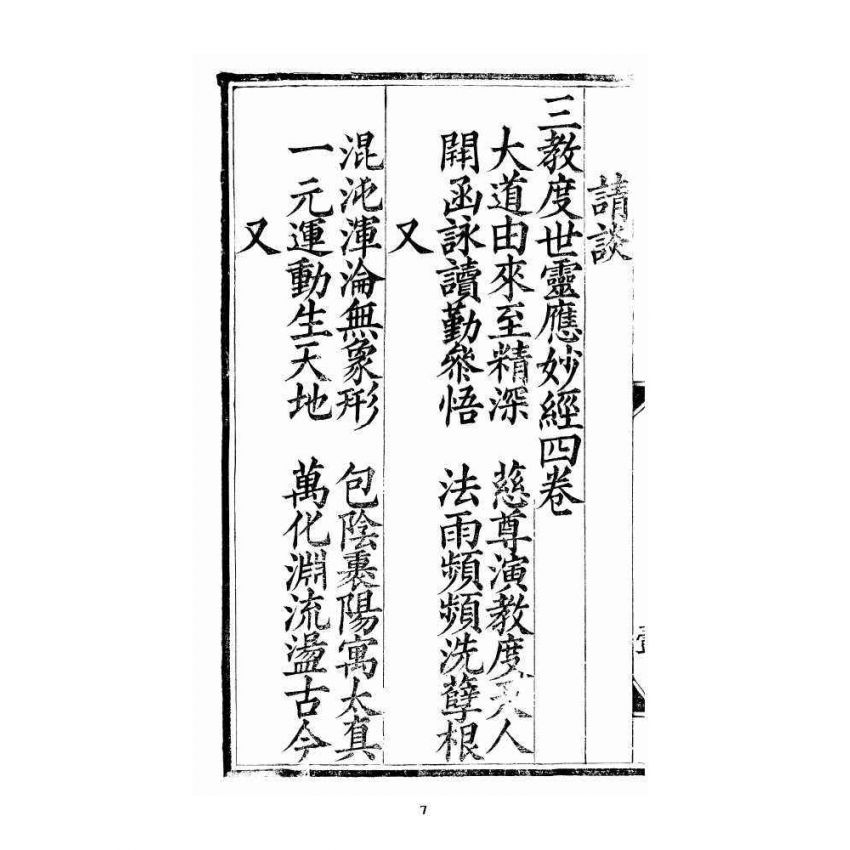 請談
三教度世靈應妙經四卷
大道由來至精深　慈尊演教度天人
開函詠讀勤叅悟　法雨頻頻洗孽根
又
混沌渾淪無象形　包陰裹陽寓太真
一元運動生天地　萬化淵流盪古今
又
7